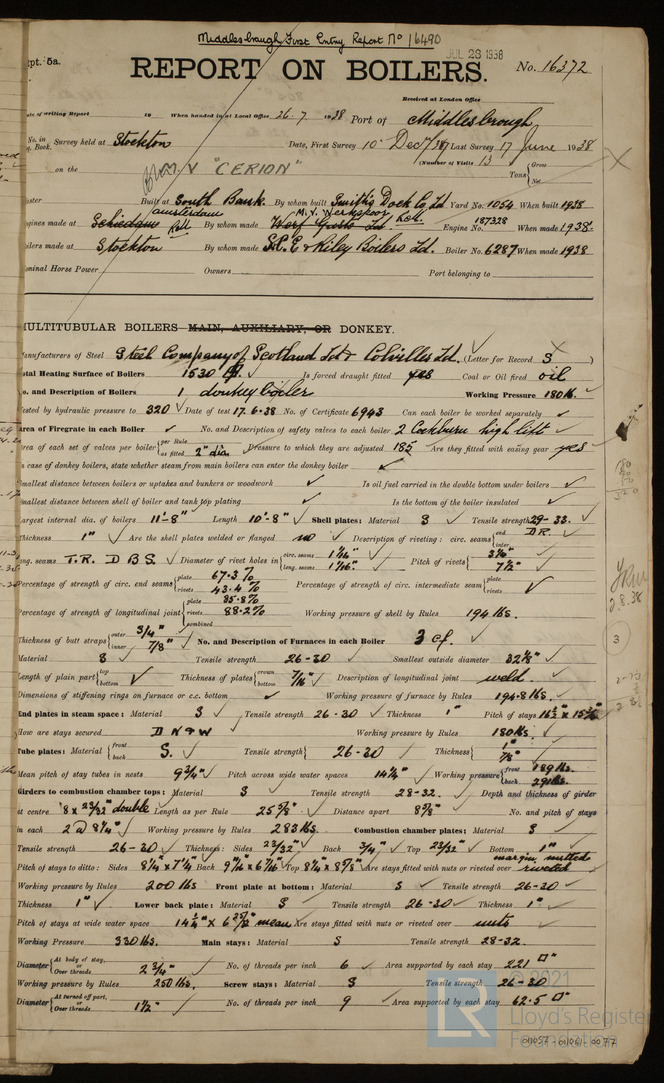 Middlesbrough First Entry Report No 16490
JUL 28 1938
pt. 5a.
REPORT ON BOILERS.
No. 16372
Received at London Office
ate of writing Report 19 When handed in at Local Office 26.7.1938 Port of Middlesbrough
No. in Survey held at Stockton Date, First Survey 10 Dec '37 Last Survey 17 June 1938
g. Book.
(Number of Visits 13
on the "CERION"
Tons { Gross
Net
aster Built at South Bank. By whom built Smith's Dock Co Ld Yard No. 1054 When built 1938
Amsterdam N.V. Werkspoor
ngines made at Schiedam By whom made Werf Gusto Ld. Engine No. 187328 When made 1938.
oilers made at Stockton By whom made S.C.E & Riley Boilers Ld. Boiler No. 6287 When made 1938
ominal Horse Power Owners Port belonging to
ULTITUBULAR BOILERS MAIN, AUXILIARY, OR DONKEY.
anufacturers of Steel Steel Company of Scotland Ld & Colvilles Ld. (Letter for Record S )
otal Heating Surface of Boilers 1530 Is forced draught fitted yes Coal or Oil fired oil
o. and Description of Boilers 1 donkey boiler Working Pressure 180 lb.
ested by hydraulic pressure to 320 Date of test 17.6.38 No. of Certificate 6943 Can each boiler be worked separately ✓
rea of Firegrate in each Boiler ✓ No. and Description of safety valves to each boiler 2 Cockburn high lift ✓
rea of each set of valves per boiler { per Rule
as fitted 2" dia Pressure to which they are adjusted 185 Are they fitted with easing gear yes
n case of donkey boilers, state whether steam from main boilers can enter the donkey boiler ✓
mallest distance between boilers or uptakes and bunkers or woodwork ✓ Is oil fuel carried in the double bottom under boilers ✓
mallest distance between shell of boiler and tank top plating ✓ Is the bottom of the boiler insulated ✓
argest internal dia. of boilers 11'-8" Length 10'-8" Shell plates: Material S Tensile strength 29-33.
hickness 1" Are the shell plates welded or flanged no Description of riveting: circ. seams { end D.R.
inter
ong. seams T.R. D B S. Diameter of rivet holes in { circ. seams 1 1/16"
long. seams 1 1/16" Pitch of rivets { 3 1/16"
7 1/2"
ercentage of strength of circ. end seams { plate 67.3 %
rivets 43.4 % Percentage of strength of circ. intermediate seam { plate
rivets ✓
ercentage of strength of longitudinal joint { plate 85.8%
rivets 88.2%
combined Working pressure of shell by Rules 194 lbs.
hickness of butt straps { outer 3/4"
inner 7/8" No. and Description of Furnaces in each Boiler 3 cf. ✓
Material S Tensile strength 26-30 Smallest outside diameter 32 1/8"
ength of plain part { top
bottom ✓ Thickness of plates { crown
bottom 7/16" Description of longitudinal joint weld
imensions of stiffening rings on furnace or c.c. bottom ✓ Working pressure of furnace by Rules 194.8 lbs.
nd plates in steam space: Material S Tensile strength 26-30 Thickness 1" Pitch of stays
ow are stays secured D N & W Working pressure by Rules 180 lbs.
ube plates: Material { front
back S. Tensile strength { 26-30 Thickness { 1"
7/8"
ean pitch of stay tubes in nests 9 3/4" Pitch across wide water spaces 14 1/4" Working pressure { front 189 lbs.
back 291 lbs.
irders to combustion chamber tops: Material S Tensile strength 28-32. Depth and thickness of girder
t centre 8 x 23/32" double Length as per Rule 25 5/8" Distance apart 8 7/8" No. and pitch of stays
in each 2 @ 8 1/4" Working pressure by Rules 283 lbs. Combustion chamber plates: Material S
ensile strength 26-30 Thickness: Sides 23/32" Back 3/4" Top 23/32" Bottom 1"
margin nutted
itch of stays to ditto: Sides 8 1/4 x 7 1/4 Back 9 7/16 x 6 7/16 Top 8 1/4 x 8 7/8 Are stays fitted with nuts or riveted over riveted
Working pressure by Rules 200 lbs Front plate at bottom: Material S Tensile strength 26-30
hickness 1" Lower back plate: Material S Tensile strength 26-30 Thickness 1"
itch of stays at wide water space 14 1/4" x 6 25/32" mean Are stays fitted with nuts or riveted over nuts
Working Pressure 330 lbs. Main stays: Material S Tensile strength 28-32.
iameter { At body of stay,
or
Over threads 2 3/4" No. of threads per inch 6 Area supported by each stay 221 □"
Working pressure by Rules 250 lbs. Screw stays: Material S Tensile strength 26-30
iameter { At turned off part,
or
Over threads 1 1/2" No. of threads per inch 9 Area supported by each stay 62.5 □"
© 2021
LR
Lloyd's Register
Foundation